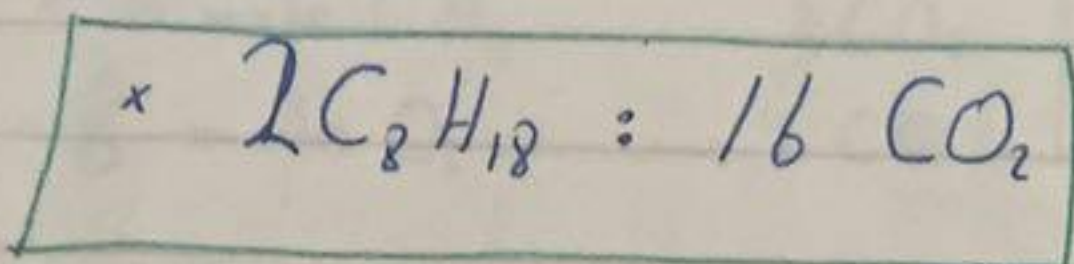 x 2C₈H₁₈ : 16 CO₂